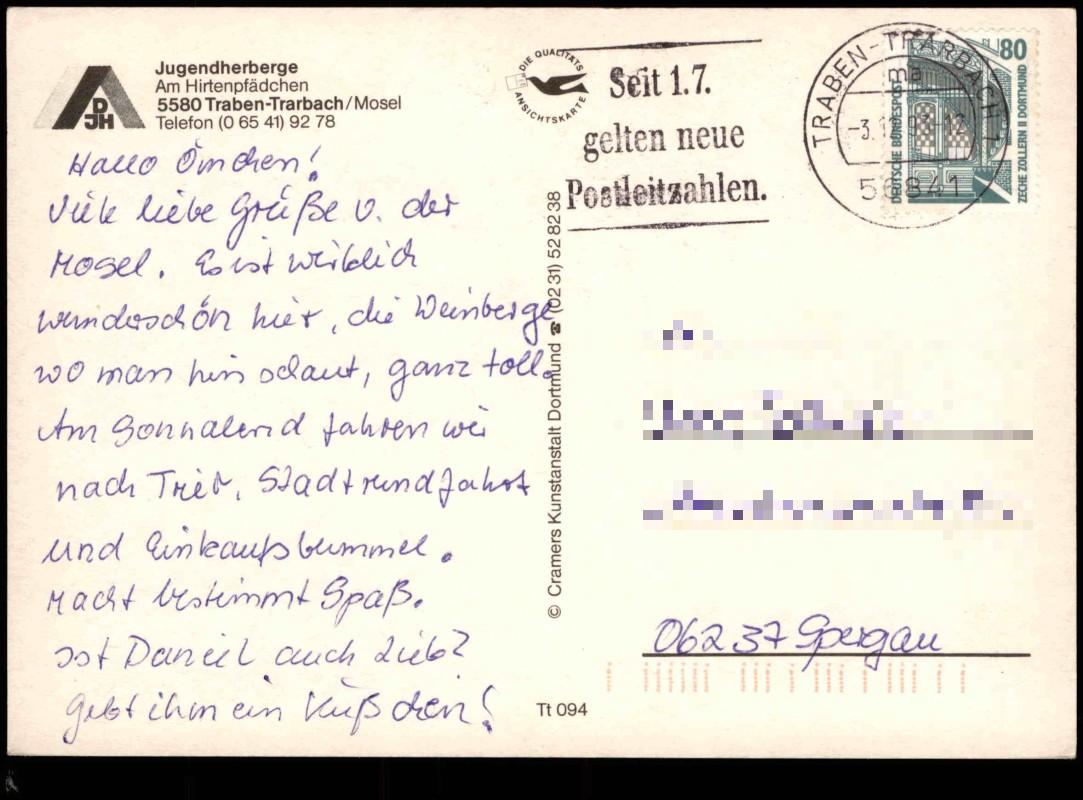 Jugendherberge
Am Hirtenpfädchen
5580 Traben-Trarbach/Mosel
Telefon (0 65 41) 92 78
DJH
Hallo Ömchen!
Viele liebe Grüße v. der
Mosel. Es ist wirklich
wunderschön hier, die Weinberge
wo man hin schaut, ganz toll.
Am Sonnabend fahren wir
nach Trier, Stadtrundfahrt
und Einkaufsbummel.
Macht bestimmt Spaß.
Ist Daniel auch lieb?
Gebt ihm ein Küßchen!
DIE QUALITÄTS
ANSICHTSKARTE
Seit 1.7.
gelten neue
Postleitzahlen.
TRABEN-TRARBACH 1
ma
56841
80
DEUTSCHE BUNDESPOST
ZECHE ZOLLERN II DORTMUND
© Cramers Kunstanstalt Dortmund ☎ (02 31) 52 82 38
06237 Spergau
Tt 094